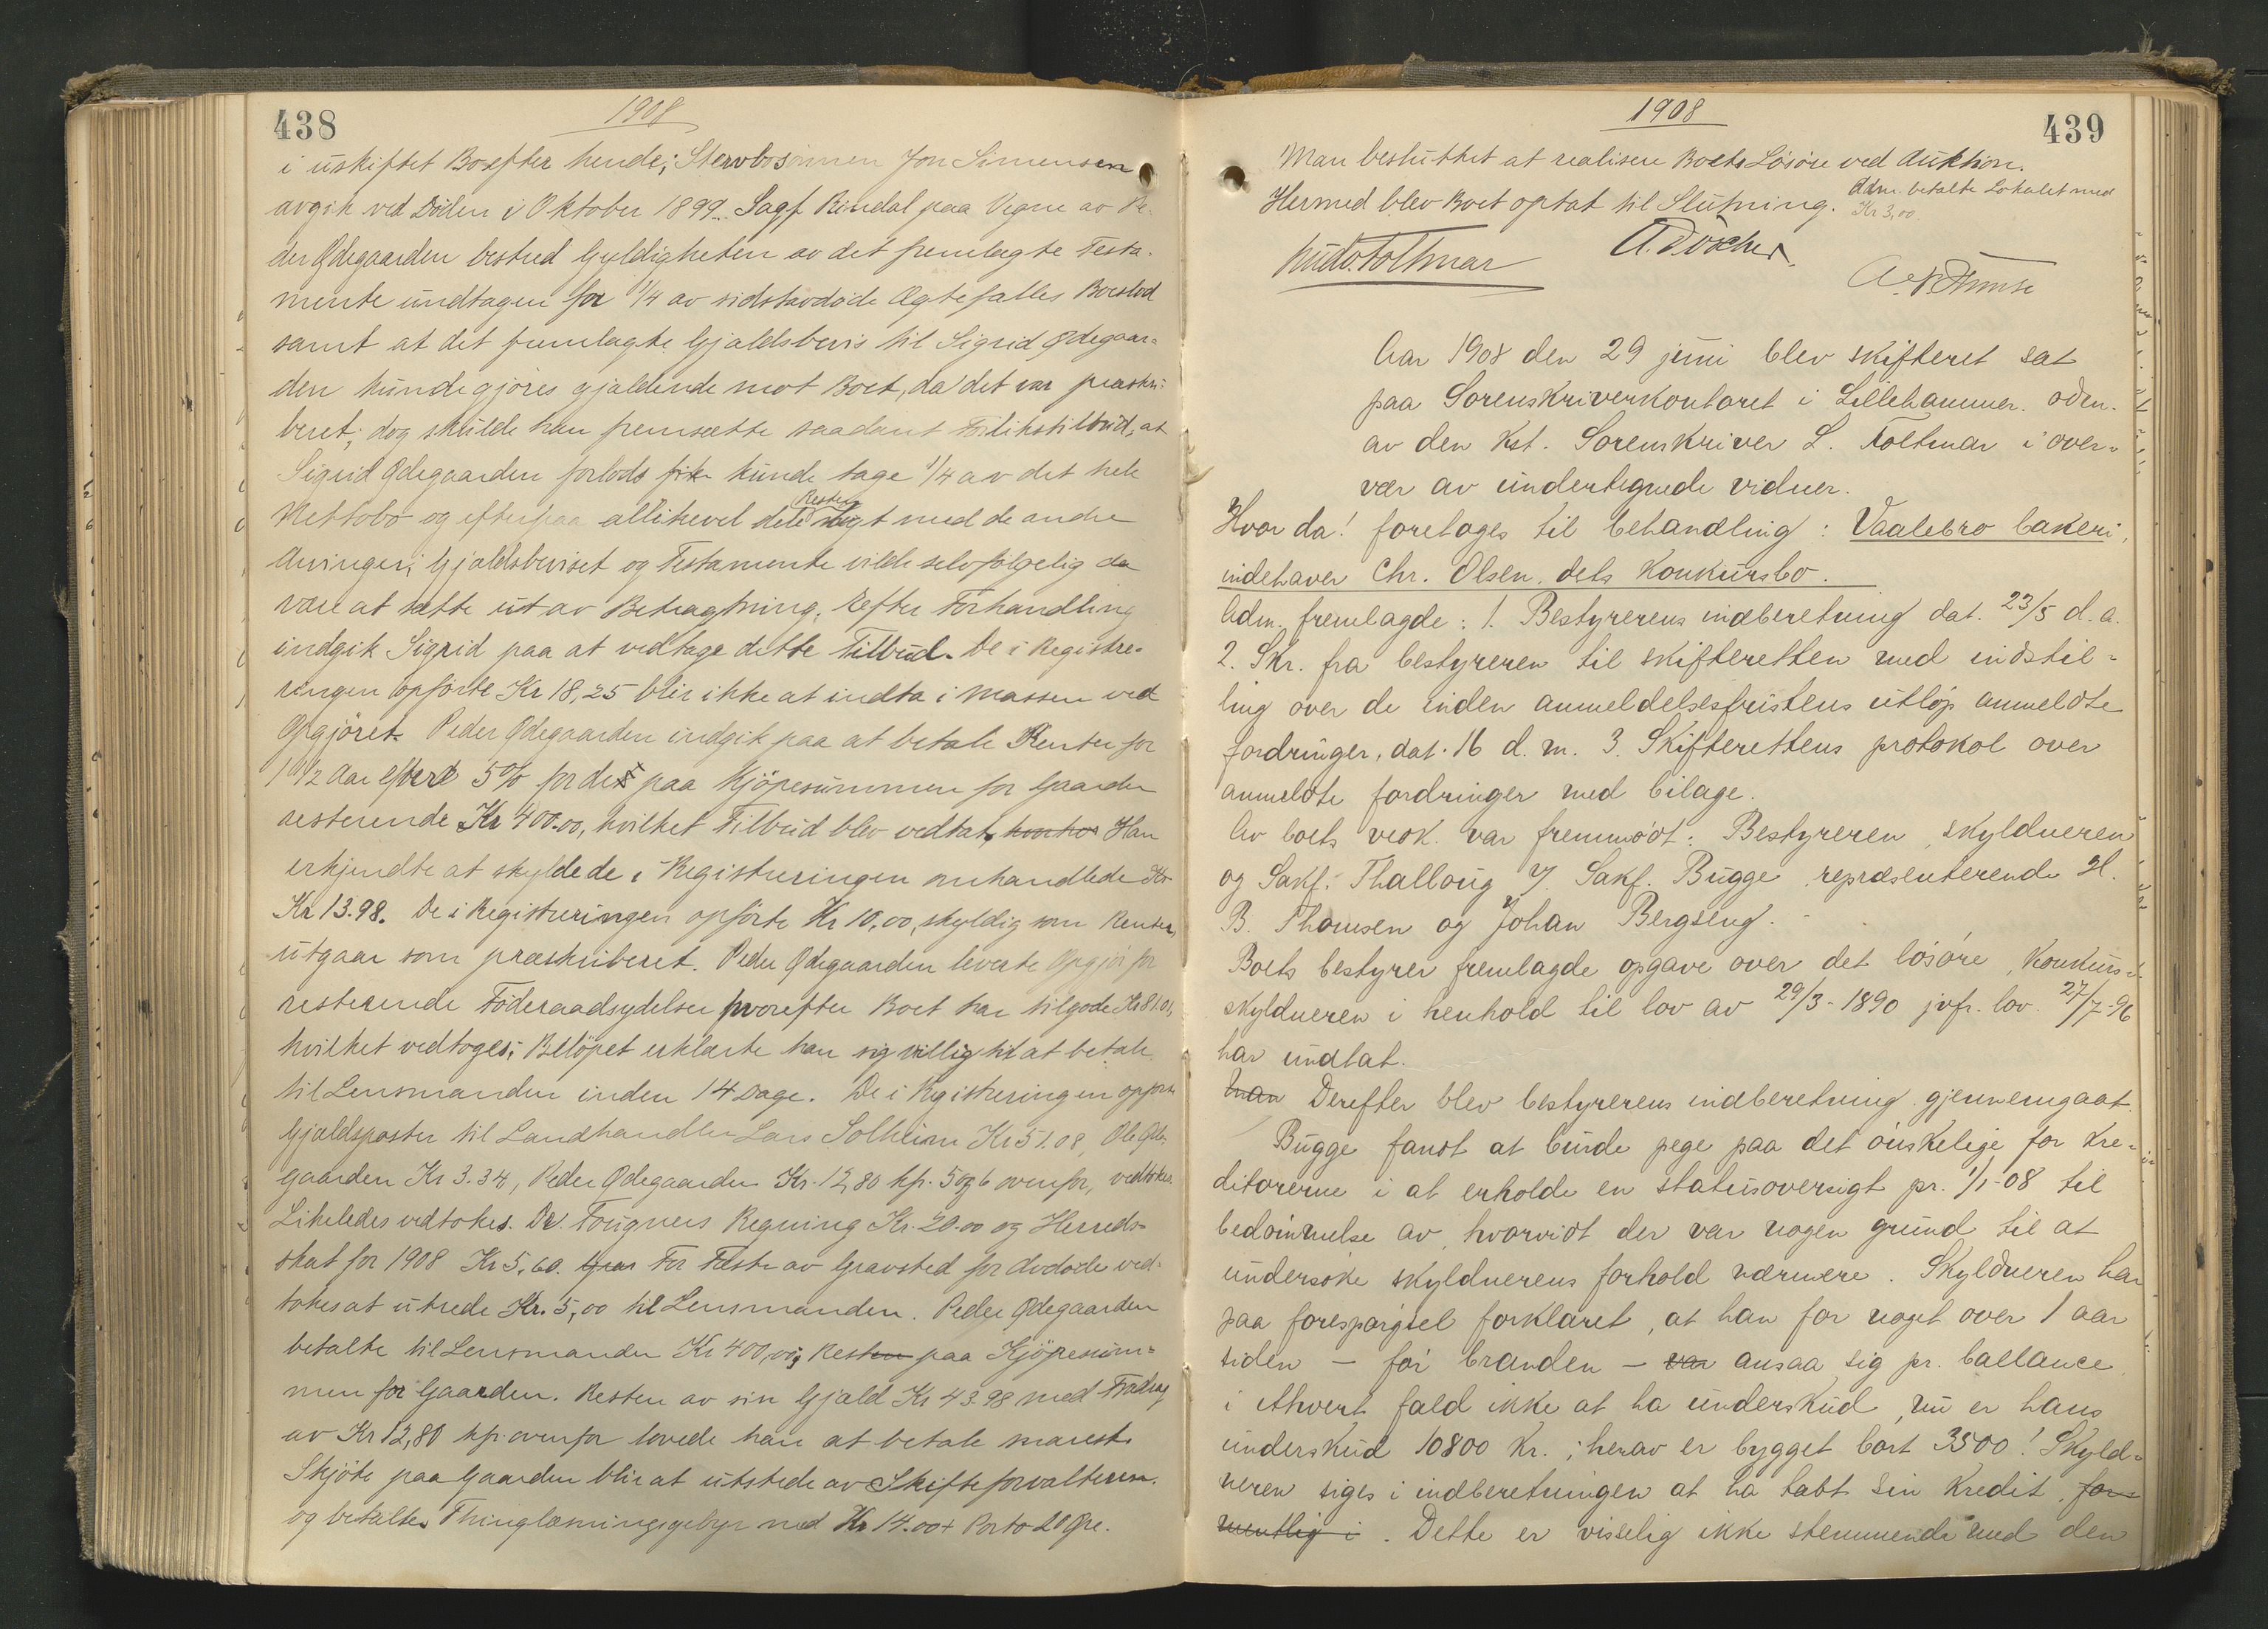 438
1908
i uskiftet Bo efter hende; Stervbosønnen Jon Simensen
avgik ved Døden i Oktober 1899. Sagf Rindal paa Vegne av Pe-
der Ødegaarden bestred Gyldigheten av det fremlagte Testa-
mente undtagen for 1/4 av sidstavdøde Ægtefælles Boeslod
samt at det fremlagte Gjældsbevis til Sigrid Ødegaar-
den kunde gjøres gjældende mot Boet, da det var præskri-
beret; dog skulde han fremsætte saadant Forlikstilbud, at
Sigrid Ødegaarden forlods fik kunde tage 1/4 av det hele
Nettobo og efterpaa allikevel dele Resten likt med de andre
Arvinger; Gjældsbeviset og Testamente vilde selvfølgelig da
være at sætte ut av Betragtning. Efter Forhandling
indgik Sigrid paa at vedtage dette Tilbud. De i Registre-
ringen opførte Kr 18,25 blir ikke at indta i Massen ved
Opgjøret. Peder Ødegaarden indgik paa at betale Renter for
1 1/2 Aar efter 5% for de paa Kjøpesummen for Gaarden
resterende Kr 400.00, hvilket Tilbud blev vedtat, Han
erkjendte at skylde de i Registreringen omhandlede Kr
Kr 13.98. De i Registreringen opførte Kr 10,00, skyldig som Renter,
utgaar som præskriberet. Peder Ødegaarden leverte Opgjør for
resterende Føderaadsydelser hvorefter Boet har tilgode Kr 81.01,
hvilket vedtoges; Beløpet erklærte han sig villig til at betale
til Lensmanden inden 14 Dage. De i Registreringen opførte
Gjældsposter til Landhandler Lars Solheim Kr 51.08, Ole Øde-
gaarden Kr 3.34, Peder Ødegaarden Kr. 12,80 kfr. 5 og 6 ovenfor, vedtokes.
Likeledes vedtokes Dr. Fougners Regning Kr. 20.00 og Herreds-
skat for 1908 Kr 5,60. For Feste av Gravsted for Avdøde ved-
tokes at utrede Kr. 5,00 til Lensmanden. Peder Ødegaarden
betalte til Lensmanden Kr 400,00, Resten paa Kjøpesum-
men for Gaarden. Resten av sin Gjæld Kr 43.98 med Fradrag
av Kr 12,80 kfr ovenfor lovede han at betale snarest.
Skjøte paa Gaarden blir at utstede av Skifteforvalteren.
og betaltes Thinglæsningsgebyr med Kr 14.00 + Porto 20 Øre.
1908
439
Man besluttet at realisere Boets Løsøre ved Auktion.
Hermed blev Boet optat til Slutning. Adm. betalte Lokalet med
Kr 3,00.
Aar 1908 den 29 juni blev skifteret sat
paa Sorenskriverkontoret i Lillehammer. adm.
av den kst. Sorenskriver L. Foltmar i over-
vær av undertegnede vidner.
Hvor da! foretoges til behandling: Vaalebro bakeri,
indehaver Chr. Olsen, dets Konkursbo.
Adm. fremlagde: 1. Bestyrerens indberetning dat. 23/5 d.a.
2. Skr. fra bestyreren til skifteretten med indstil-
ling over de inden anmeldelsesfristens utløp anmeldte
fordringer, dat. 16 d. m. 3. Skifterettens protokol over
anmeldte fordringer med bilage.
Av boets vedk. var fremmødt: Bestyreren, skyldneren
og Sakf. Thallaug v/ Sakf. Bugge repræsenterende H.
B. Thomsen og Johan Bergseng.
Boets bestyrer fremlagde opgave over det løsøre, konkurs-
skyldneren i henhold til lov av 29/3-1890 jvfr. lov 27/7-96
har undtat.
han Derefter blev bestyrerens indberetning gjennemgaat.
Bugge fandt at burde pege paa det ønskelige for kre-
ditorerne i at erholde en statusoversigt pr. 1/1-08 til
bedømmelse av, hvorvidt der var nogen grund til at
undersøke skyldnerens forhold nærmere. Skyldneren har
paa forespørgsel forklaret, at han for noget over 1 aar
siden – før branden – var ansaa sig pr. ballance
i ethvert fald ikke at ha underskud, nu er hans
underskud 10800 kr.; herav er bygget bort 3500! Skyld-
neren siges i indberetningen at ha tabt sin kredit,
. Dette er visselig ikke stemmende med den